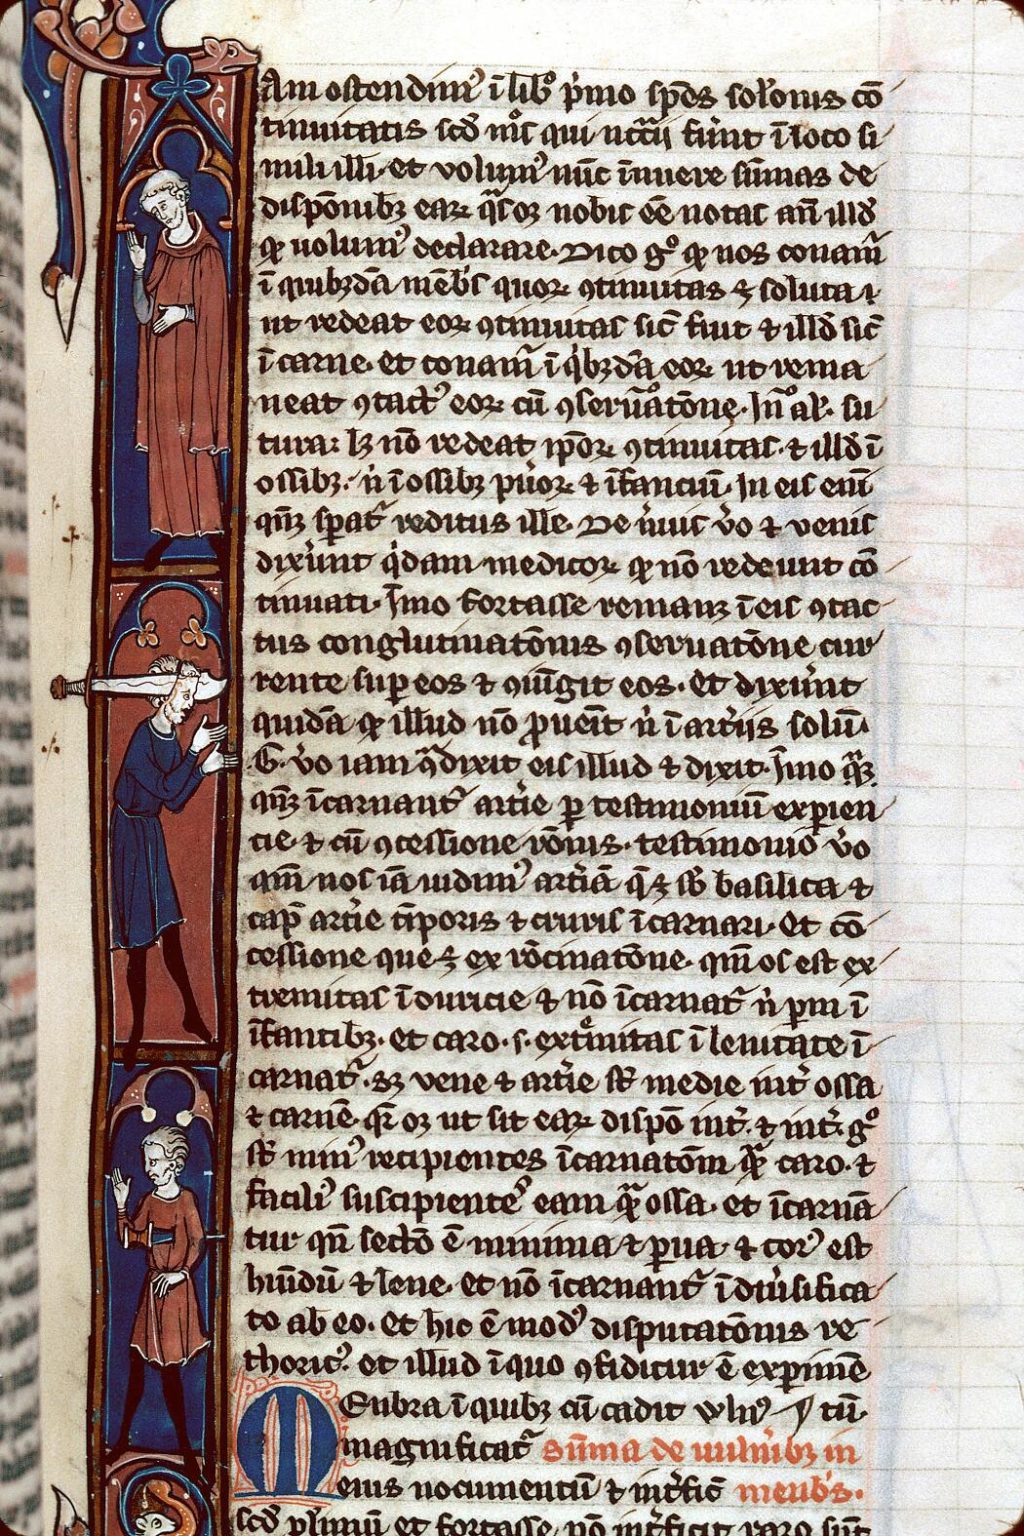 Am ostendim᷒ ī libº p̓mo sp̄dѕ solōnis cō
tinuitatis scd̄ mōs qui nc̄cīj fūnt ī loco si
mili illi. et volum᷒ nūc īnuere sūmas de
dispōnibꝫ eaꝝ q̄s oꝫ nobis eē notas an̄ illd̄
qꝫ uolum᷒ declarare. Dico gº qꝫ nos conam̄
ī quibꝫdā mēb̄s quoꝝ ꝯtinuitas ꝫ soluta ⁊
ut redeat eoꝝ ꝯtinuitas sic̄ fuit ⁊ illd̄ sic̄
ī carne. et conam̄ ī q̓bꝫdā eoꝝ ut rema
neat ꝯtact᷒ eoꝝ cū ꝯseruatōne. In quo al. su
tura: lꝫ nō redeat ipōꝝ ꝯtinuitas. ⁊ illd̄ ī
ossibꝫ. n̄ ī ossibꝫ puoꝝ ⁊ īfanciū. In eis enī
qn̄ꝫ sp̄at᷒ reditus ille. De n̄uis v̄o ⁊ venis
dixūnt q̓dam medicoꝝ qꝫ nō redeunt cō
tinuati. Īmo fortasse remanꝫ ī eis ꝯtac
tus conglutinatōnis ꝯseruatōne cur
rente sup eos ⁊ ꝯiūgit eos. et dixūnt
quidā qꝫ illud nō ꝓueīt n̄ ī art̓iis solū.
G. v̄o iam ꝯ̄dixit eis illud ⁊ dixit. Īmo q̄ꝫ
qn̄ꝫ īcarnant᷒ art̓ie ꝑ testimoniū expien
cie. ⁊ cū ꝯcessione rōnis. testimonio v̄o
qm̄ nos iā uidim᷒ art̓iā q̄ ꝫ sb̄ basilica ⁊
cap̄ art̓ie t̄poris ⁊ cruris īcarnari. Et cō
cessione que ꝫ ex rōcinatōne. qm̄ os est ex
tremitas ī duricie ⁊ nō īcarnat᷒ n̄ ꝑm ī
īfantibꝫ. et caro .s. ext̓mitas ī lenitate ī
carnat᷒. sꝫ vene ⁊ art̓ie st̄ medie int̄ ossa
⁊ carnē. q̄r oꝫ ut sit eaꝝ dispō int̄. ⁊ int̄. gº
st̄ min᷒ recipientes īcarnatōm q̄ꝫ caro. ⁊
facili᷒ suscipiente᷒ eam q̄ꝫ ossa. et īcarnā
tur qn̄ sectō ē minima ⁊ ꝑua. ⁊ cor᷒ est
hūidū ⁊ lene. et nō īcarnant᷒ ī diūsifica
to ab eo. et hic ē mod᷒ disputatōnis re
thoric᷒. et illud ī quo ꝯfiditur ē experimē
Menbra ī quibꝫ cū cadit vln᷒ tū.
magnificat᷒ sūma de uuln̄ibꝫ in
eius nocumentū ⁊ int̄fic̄ menb̄s.
scd̄ pl̓imū et fortasse nō int̄ficit raro sunt